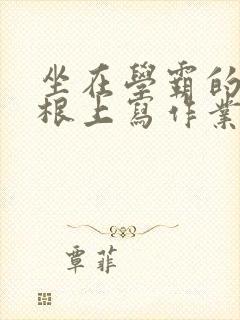 坐在學霸的
根上寫作業
覃菲